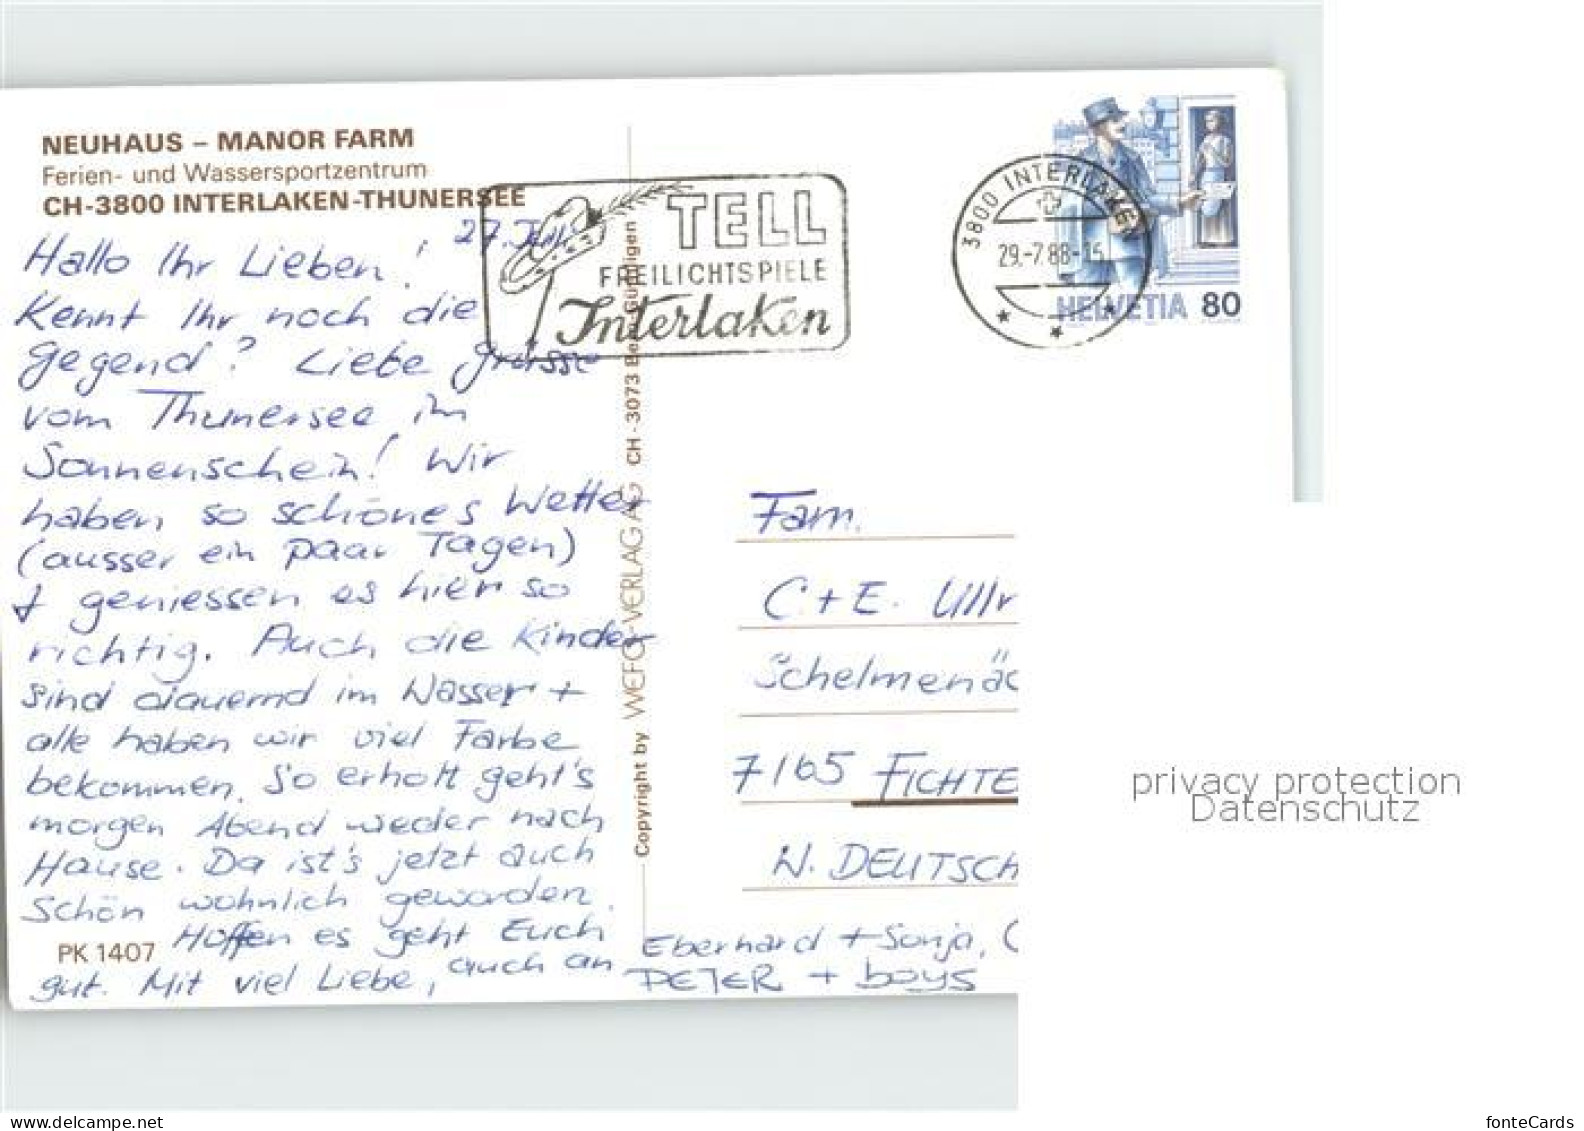 NEUHAUS – MANOR FARM
Ferien- und Wassersportzentrum
CH-3800 INTERLAKEN-THUNERSEE
27.
Hallo Ihr Lieben!
Kennt Ihr noch die
Gegend? Liebe Grüsse
vom Thunersee im
Sonnenschein! Wir
haben so schönes Wetter
(ausser ein paar Tagen)
+ geniessen es hier so
richtig. Auch die Kinder
sind dauernd im Wasser +
alle haben wir viel Farbe
bekommen. So erholt geht's
morgen Abend wieder nach
Hause. Da ist's jetzt auch
schön wohnlich geworden.
Hoffen es geht Euch
gut. Mit viel Liebe, auch an
Eberhard + Sonja, (
PETER + boys
PK 1407
Copyright by WEFO-VERLAG AG CH-3073 Bern-Gümligen
TELL
FREILICHTSPIELE
Interlaken
3800 INTERLAKEN
29.-7.88-15
HELVETIA 80
Fam.
C. + E. Ullr
Schelmenäc
7165 FICHTE
W. DEUTSCH
privacy protection
Datenschutz
www.delcampe.net
fonteCards